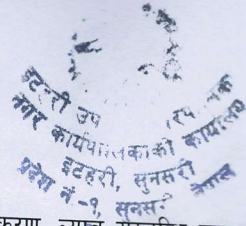 इटहरी उप
नगर कार्यपालिकाको कार्यालय
इटहरी, सुनसरी
प्रदेश नं.-१, सुनसरी नेपाल